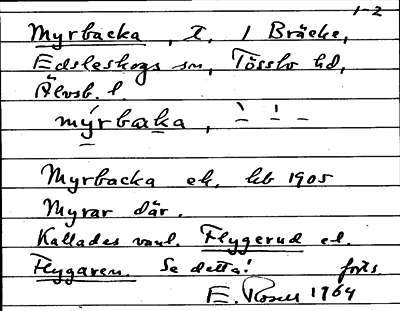 1-2
Myrbacka, t. i Bräcke,
Edsleskogs sn, Tössbo hd,
Älvsb. l.
mýrbaka, ` ' -
Myrbacka ek. kb 1905
Myrar där.
Kallades vanl. Flygerud el.
Flygaren. Se detta! forts.
E. Rosell 1964